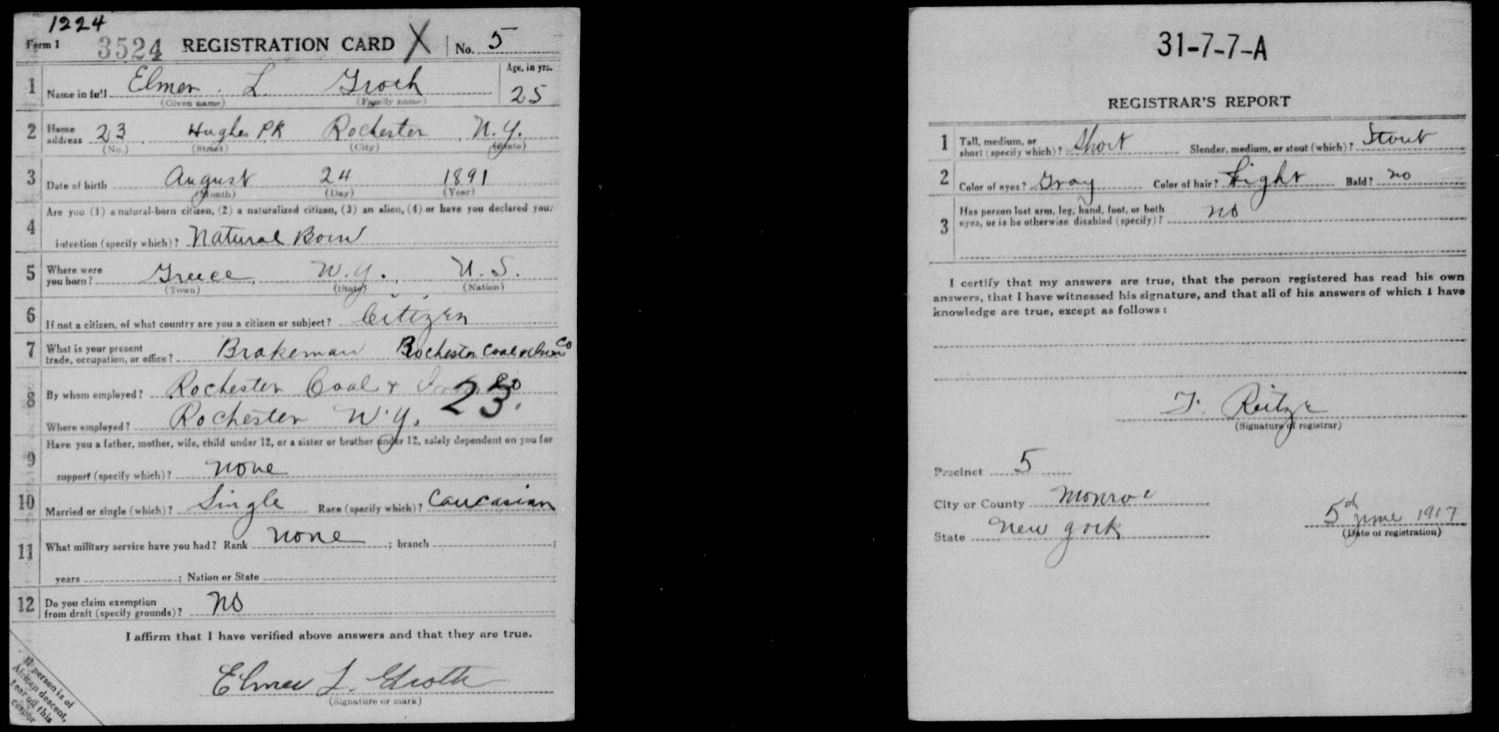 1224
Form 1 3524 REGISTRATION CARD X No. 5
1 Name in full Elmer L. Groth Age, in yrs. 25
(Given name) (Family name)
2 Home address 23 Hughes PK Rochester N.Y.
(No.) (Street) (City) (State)
3 Date of birth August 24 1891
(Month) (Day) (Year)
4 Are you (1) a natural-born citizen, (2) a naturalized citizen, (3) an alien, (4) or have you declared your
intention (specify which)? Natural Born
5 Where were you born? Greece N.Y. U.S.
(Town) (State) (Nation)
6 If not a citizen, of what country are you a citizen or subject? Citizen
7 What is your present trade, occupation, or office? Brakeman Rochester Coal & Iron Co
8 By whom employed? Rochester Coal & Iron Co
23.
Where employed? Rochester N.Y.
9 Have you a father, mother, wife, child under 12, or a sister or brother under 12, solely dependent on you for
support (specify which)? none
10 Married or single (which)? Single Race (specify which)? Caucasian
11 What military service have you had? Rank none ; branch ;
years ; Nation or State
12 Do you claim exemption from draft (specify grounds)? No
I affirm that I have verified above answers and that they are true.
Elmer L. Groth
(Signature or mark)
If person is of
African descent,
tear off this
corner
31-7-7-A
REGISTRAR'S REPORT
1 Tall, medium, or short (specify which)? Short Slender, medium, or stout (which)? Stout
2 Color of eyes? Gray Color of hair? Light Bald? no
3 Has person lost arm, leg, hand, foot, or both
eyes, or is he otherwise disabled (specify)? no
I certify that my answers are true, that the person registered has read his own
answers, that I have witnessed his signature, and that all of his answers of which I have
knowledge are true, except as follows:
(Signature of registrar)
Precinct 5
City or County Monroe
State New York
5 June 1917
(Date of registration)